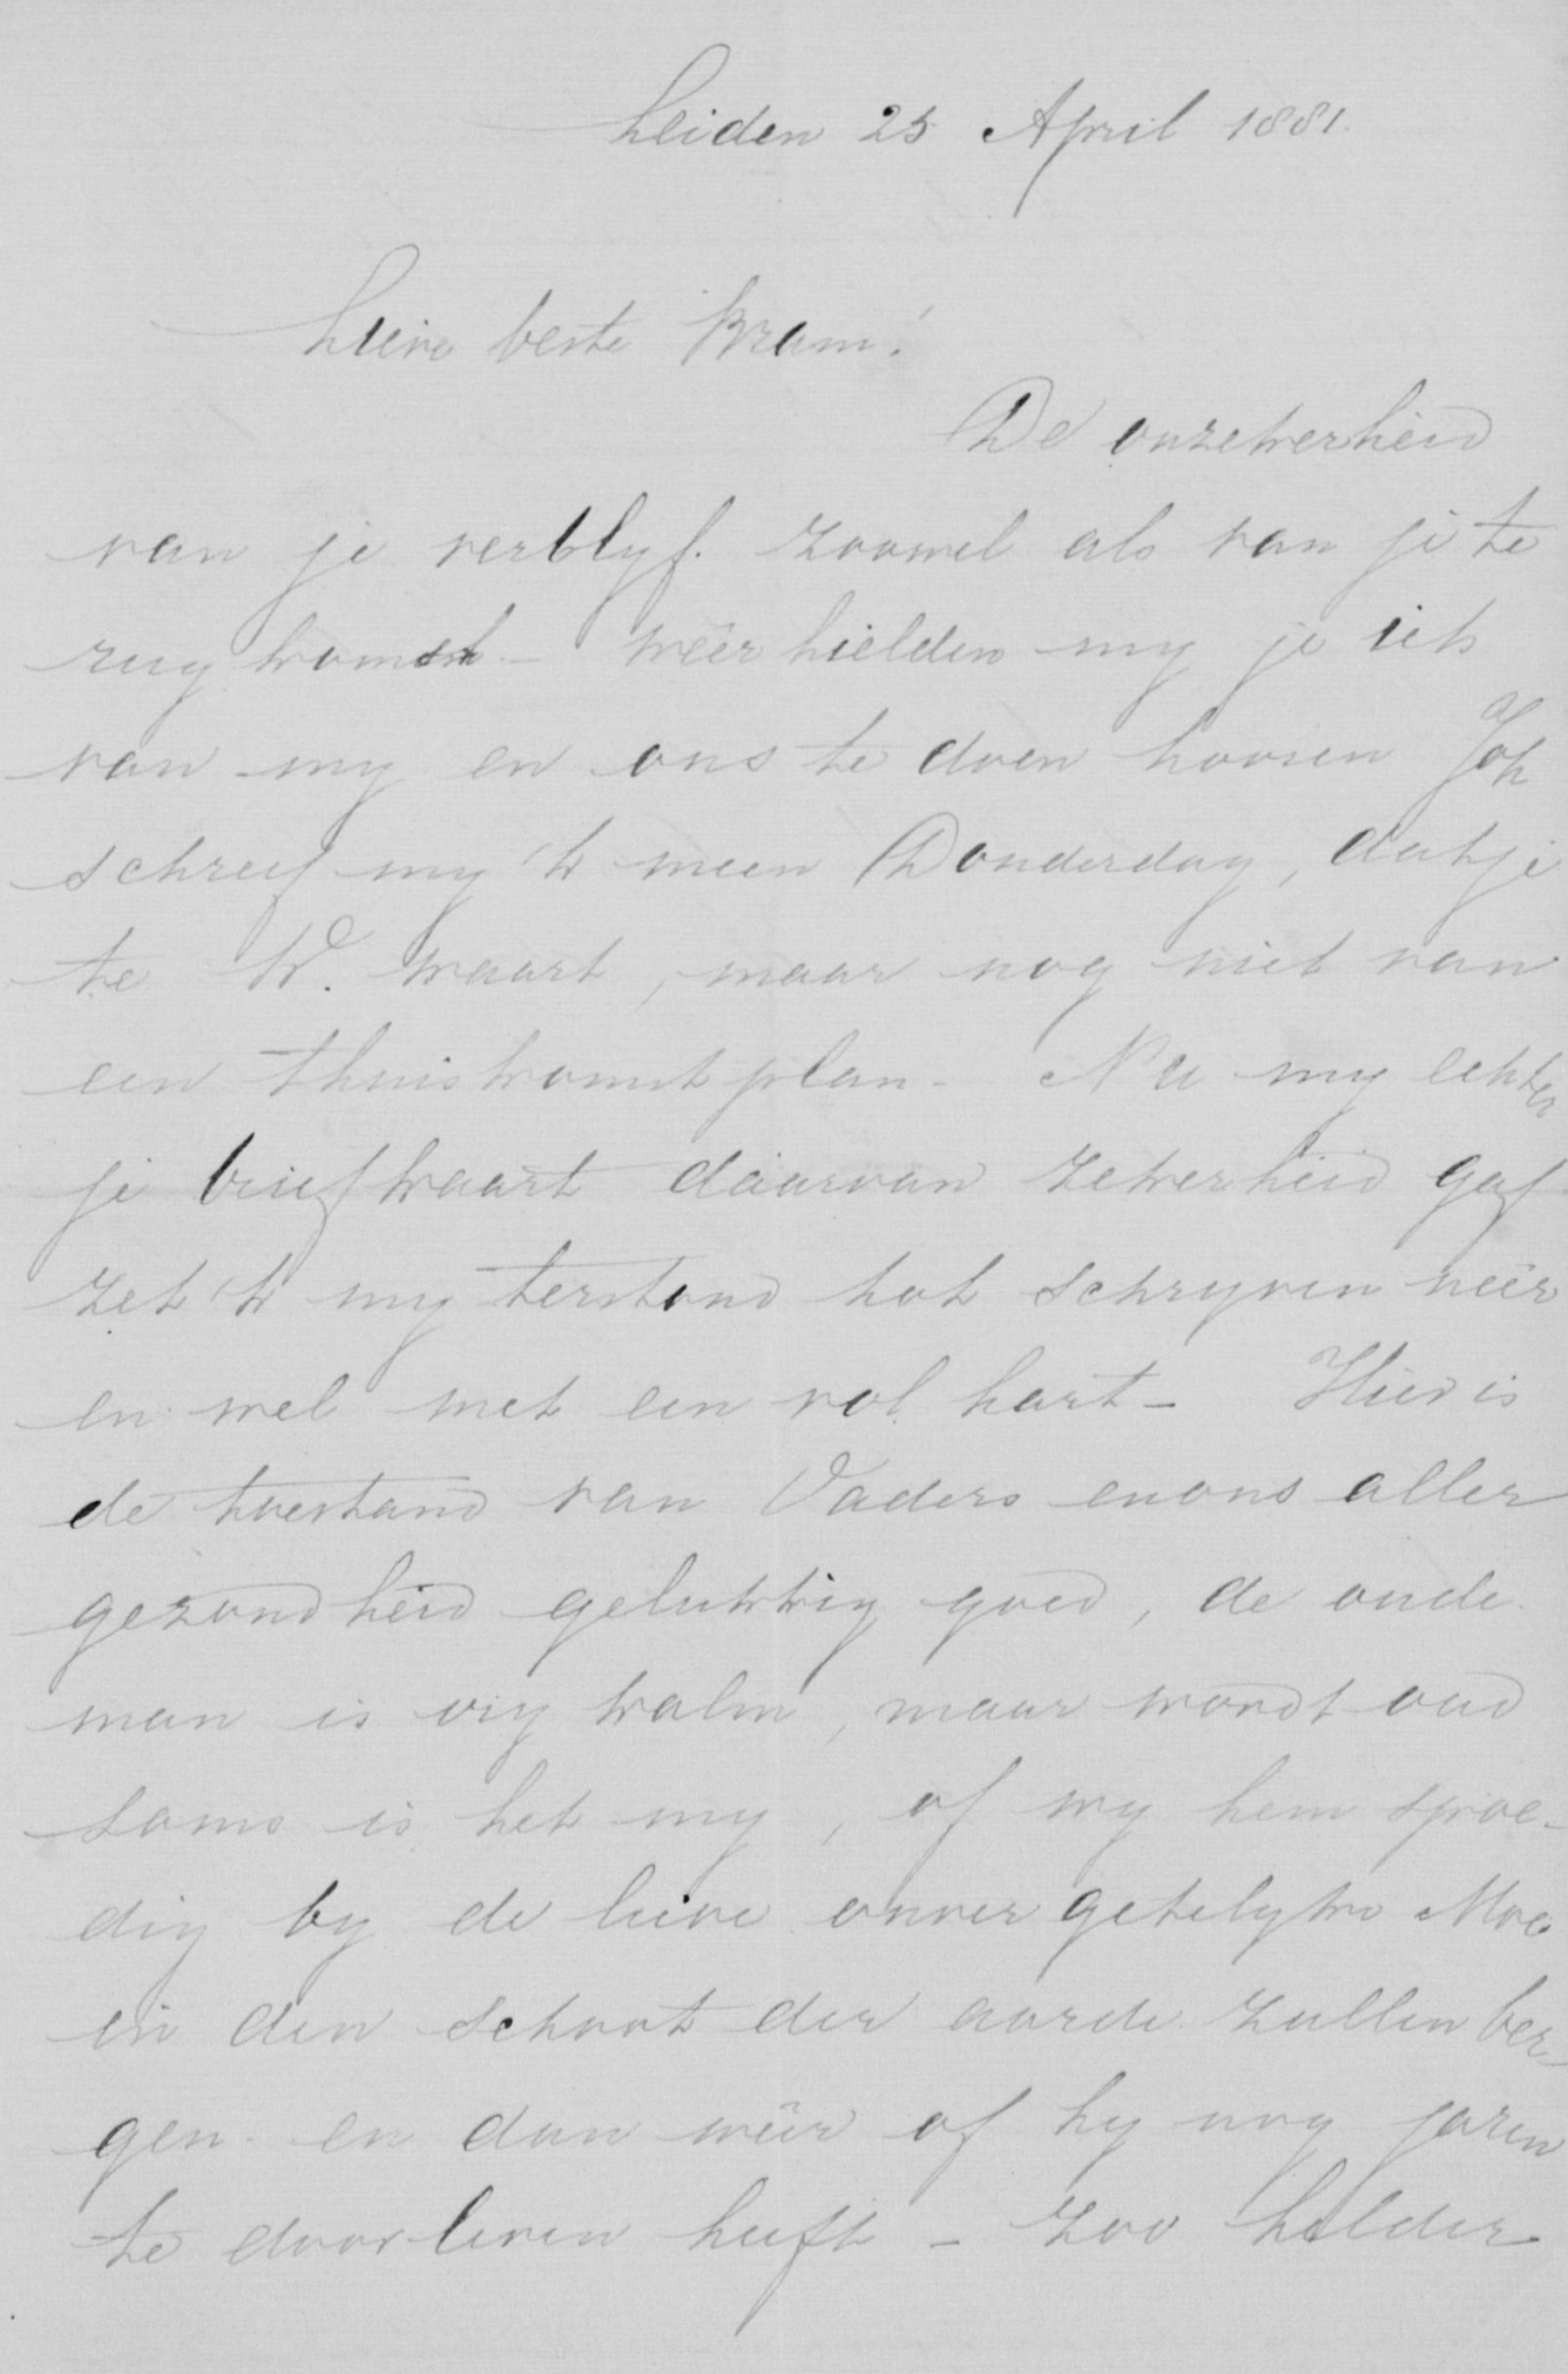 Leiden 25 April 1881.
Lieve beste Bram!
De onzekerheid
van je verblyf. zoowel als van je te
rug komst - weêrhielden my je iets
van my en ons te doen hooren Joh
schreef my 'k meen Donderdag, dat je
te W. waart, maar nog niet van
een thuiskomstplan - Nu my echter
je briefkaart daarvan zekerheid gaf
zet 'k my terstond tot schryven neêr
en wel met een vol hart - Hier is
de toestand van Vaders en ons aller
gezondheid gelukkig goed, de oude
man is vry kalm, maar wordt oud
soms is het my, of wy hem spoe-
dig by de lieve onvergetelyke Moe
in den schoot der aarde zullen ber-
gen - en dan weêr of hy nog jaren
te doorleven heeft - zoo helder